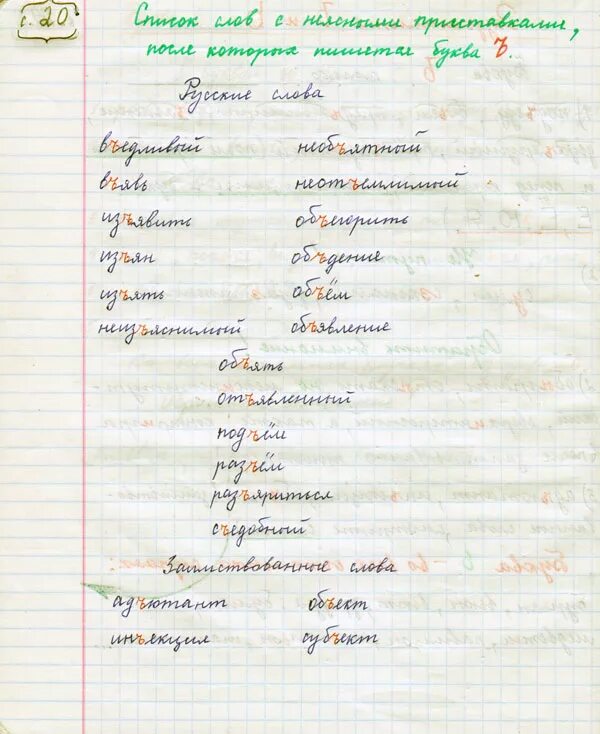 с. 20
Список слов с неясными приставками,
после которых пишется буква Ъ.
Русские слова
въедливый необъятный
въявь неотъемлимый
изъявить объегорить
изъян объедение
изъять объём
неизъяснимый объявление
объять
отъявленный
подъём
разъём
разъяриться
съедобный
Заимствованные слова
адъютант объект
инъекция субъект